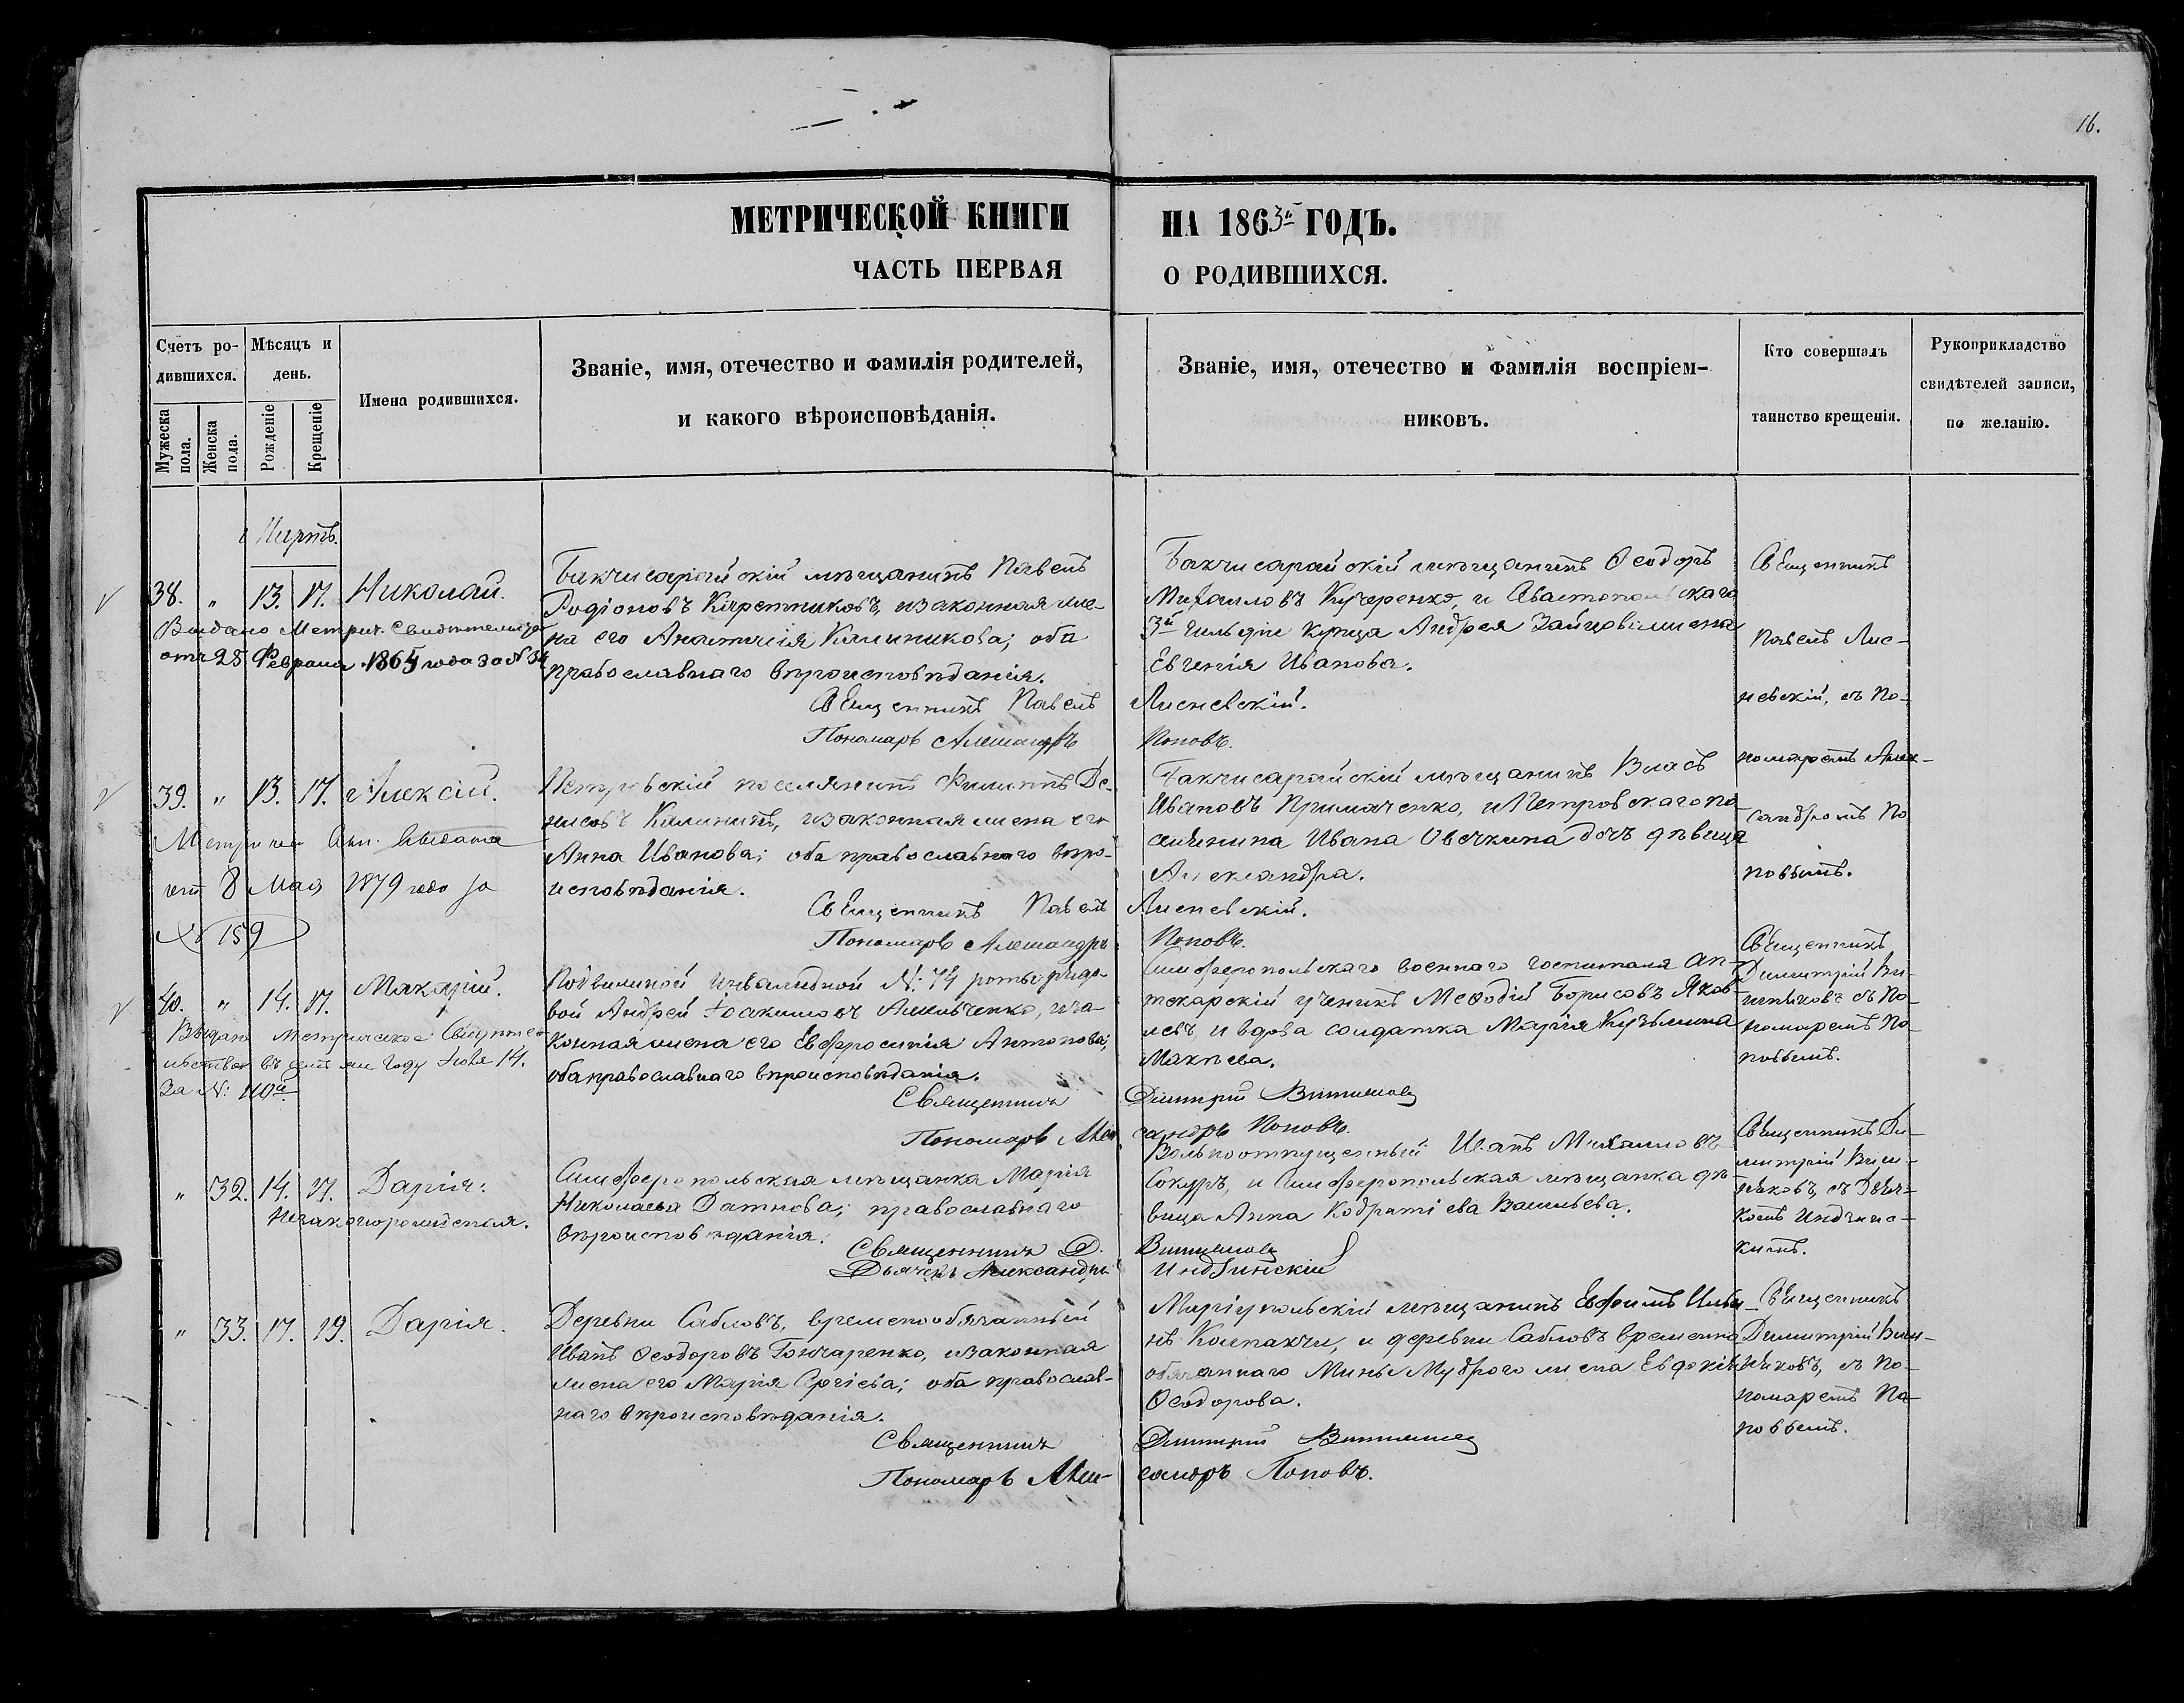 16.
МЕТРИЧЕСКОЙ КНИГИ НА 1863й ГОДЪ.
ЧАСТЬ ПЕРВАЯ О РОДИВШИХСЯ.
Счетъ ро-
дившихся.
Мужеска пола.
Женска пола.
Мѣсяцъ и
день.
Рожденіе
Крещеніе
Имена родившихся.
Званіе, имя, отечество и фамилія родителей,
и какого вѣроисповѣданія.
Званіе, имя, отечество и фамилія воспріем-
никовъ.
Кто совершалъ
таинство крещенія.
Рукоприкладство
свидѣтелей записи,
по желанію.
Мартъ.
38. " 13. 17. Николай.
Выдано Метрич. Свидѣтельство
отъ 28 Февраля 1865 года за №
Бакчисарайскій мѣщанинъ Павелъ
Родіоновъ Каретниковъ, и законная же-
на его Анастасія Калиникова; оба
православнаго вѣроисповѣданія.
Священникъ Павелъ Лисневскій.
Пономарь Александръ Поповъ.
Бакчисарайскій мѣщанинъ Ѳеодоръ
Михаиловъ Кучеренко, и Севастопольскаго
3й гильдіи купца Андрея Зайцова жена
Евгенія Иванова.
Священникъ
Павелъ Лис-
невскій, съ По-
номаремъ Алек-
сандромъ По-
повымъ.
39. " 13. 17. Алексій.
Метричес. выдана
отъ 8 Мая 1879 года за
№ 159
Петровскій поселянинъ Филиппъ Де-
нисовъ Калининъ, и законная жена его
Анна Иванова; оба православнаго вѣро-
исповѣданія.
Священникъ Павелъ Лисневскій.
Пономарь Александръ Поповъ.
Бакчисарайскій мѣщанинъ Власъ
Ивановъ Примаченко, и Петровскаго по-
селянина Ивана Овечкина дочь дѣвица
Александра.
40. " 14. 17. Макарій.
Выдано Метрическое Свидѣте-
льство въ семъ же году Іюля 14.
За №: 110й
Подвижной инвалидной №: 74 роты рядо-
вой Андрей Іоакимовъ Амельченко, и за-
конная жена его Евфросинія Антонова;
оба православнаго вѣроисповѣданія.
Священникъ Димитрій
Пономарь Александръ Поповъ.
Симферопольскаго военнаго госпиталя ап-
текарскій ученикъ Меѳодій Борисовъ Яков-
левъ, и вдова солдатка Марія Кузьмина
Макѣева.
Священникъ
Димитрій
съ По-
номаремъ По-
повымъ.
" 32. 14. 17. Дарія.
Незаконорожденная.
Симферопольская мѣщанка Марія
Николаева Датнова; православнаго
вѣроисповѣданія.
Священникъ Д.
Дьячекъ Александръ Индзинскій
Вольноотпущенный Иванъ Михаиловъ
Сокуръ, и Симферопольская мѣщанка дѣ-
вица Анна Кодратіева Васильева.
Священникъ Ди-
митрій
съ Дьяч-
комъ Индзинс-
кимъ.
" 33. 17. 19. Дарія.
Деревни Сабловъ, временообязанный
Иванъ Ѳеодоровъ Гончаренко, и законная
жена его Марія Сергіева; оба православ-
наго вѣроисповѣданія.
Священникъ Димитрій
Пономарь Александръ Поповъ.
Маріупольскій мѣщанинъ Евфимъ Ильи-
нъ Колпакчи, и деревни Сабловъ временно
обязаннаго Мины Мудраго жена Евдокія
Ѳеодорова.
Священникъ
Димитрій
съ По-
номаремъ По-
повымъ.